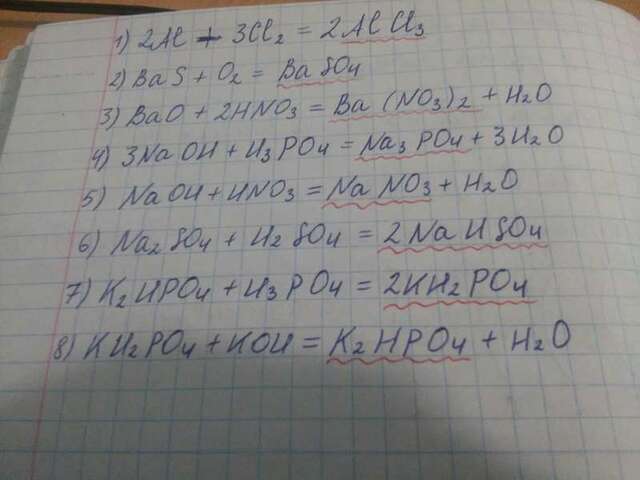 1) 2Al + 3Cl2 = 2AlCl3
2) BaS + O2 = BaSO4
3) BaO + 2HNO3 = Ba(NO3)2 + H2O
4) 3NaOH + H3PO4 = Na3PO4 + 3H2O
5) NaOH + HNO3 = NaNO3 + H2O
6) Na2SO4 + H2SO4 = 2NaHSO4
7) K2HPO4 + H3PO4 = 2KH2PO4
8) KH2PO4 + KOH = K2HPO4 + H2O